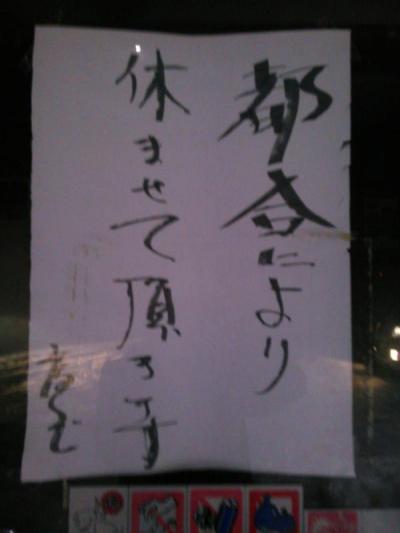 都合により
休ませて頂きます